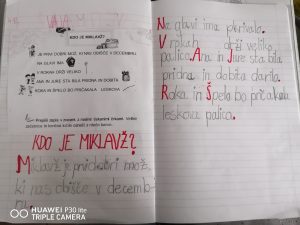 VAJA
KDO JE MIKLAVŽ?
JE PRVI DOBRI MOŽ, KI NAS OBIŠČE V DECEMBRU
NA GLAVI IMA
V ROKAH DRŽI VELIKO
ANA IN JURE STA BILA PRIDNA IN DOBITA
ROKA IN ŠPELO BO PRIČAKALA LESKOVA
KDO JE MIKLAVŽ?
Miklavž je prvi dobri mož,
ki nas obišče v decemb-
ru.
Na glavi ima pokrivalo.
V rokah drži veliko
palico. Ana in Jure sta bila
pridna in dobita darila.
Roka in Špelo bo pričakala
leskova palica.
HUAWEI P30 lite
TRIPLE CAMERA